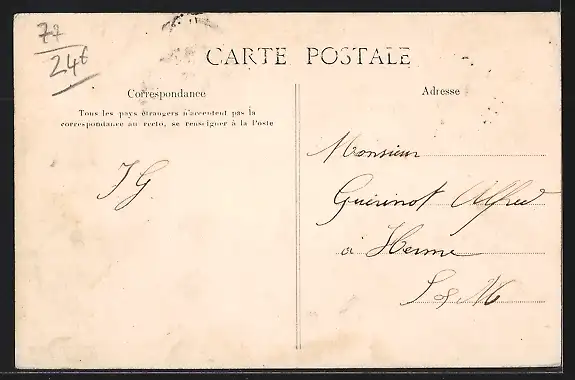 77
24t
CARTE POSTALE
Correspondance
Tous les pays étrangers n'acceptent pas la
correspondance au recto, se renseigner à la Poste
JG
Adresse
Monsieur
Guérinot Alfred
à Hermé
S et M